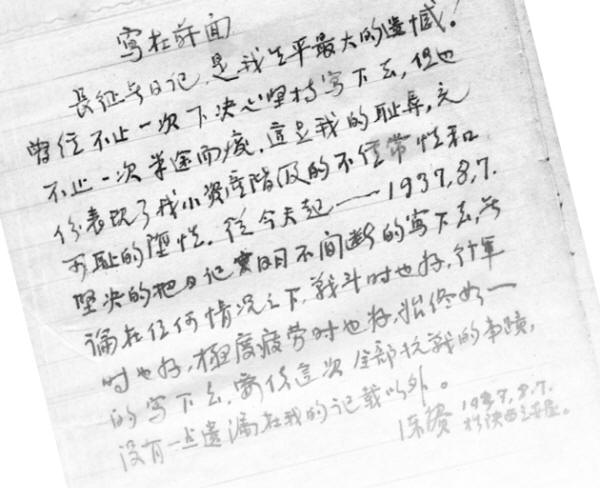 寫在前面
長征无日记,是我生平最大的遗憾!
曾经不止一次下决心坚持写下去,但也
不止一次半途而废,這是我的耻辱,充
份表现了我小資產階级的不经常性和
可耻的堕性。從今天起——1937.8.7.
坚决的把日记實日不间断的写下去,无
論在任何情况之下,戰斗时也好,行軍
时也好,極度疲劳时也好,始终如一
的写下去,要使这次全部抗戰的事蹟,
没有一点遗漏在我的记载以外。
1937.8.7.